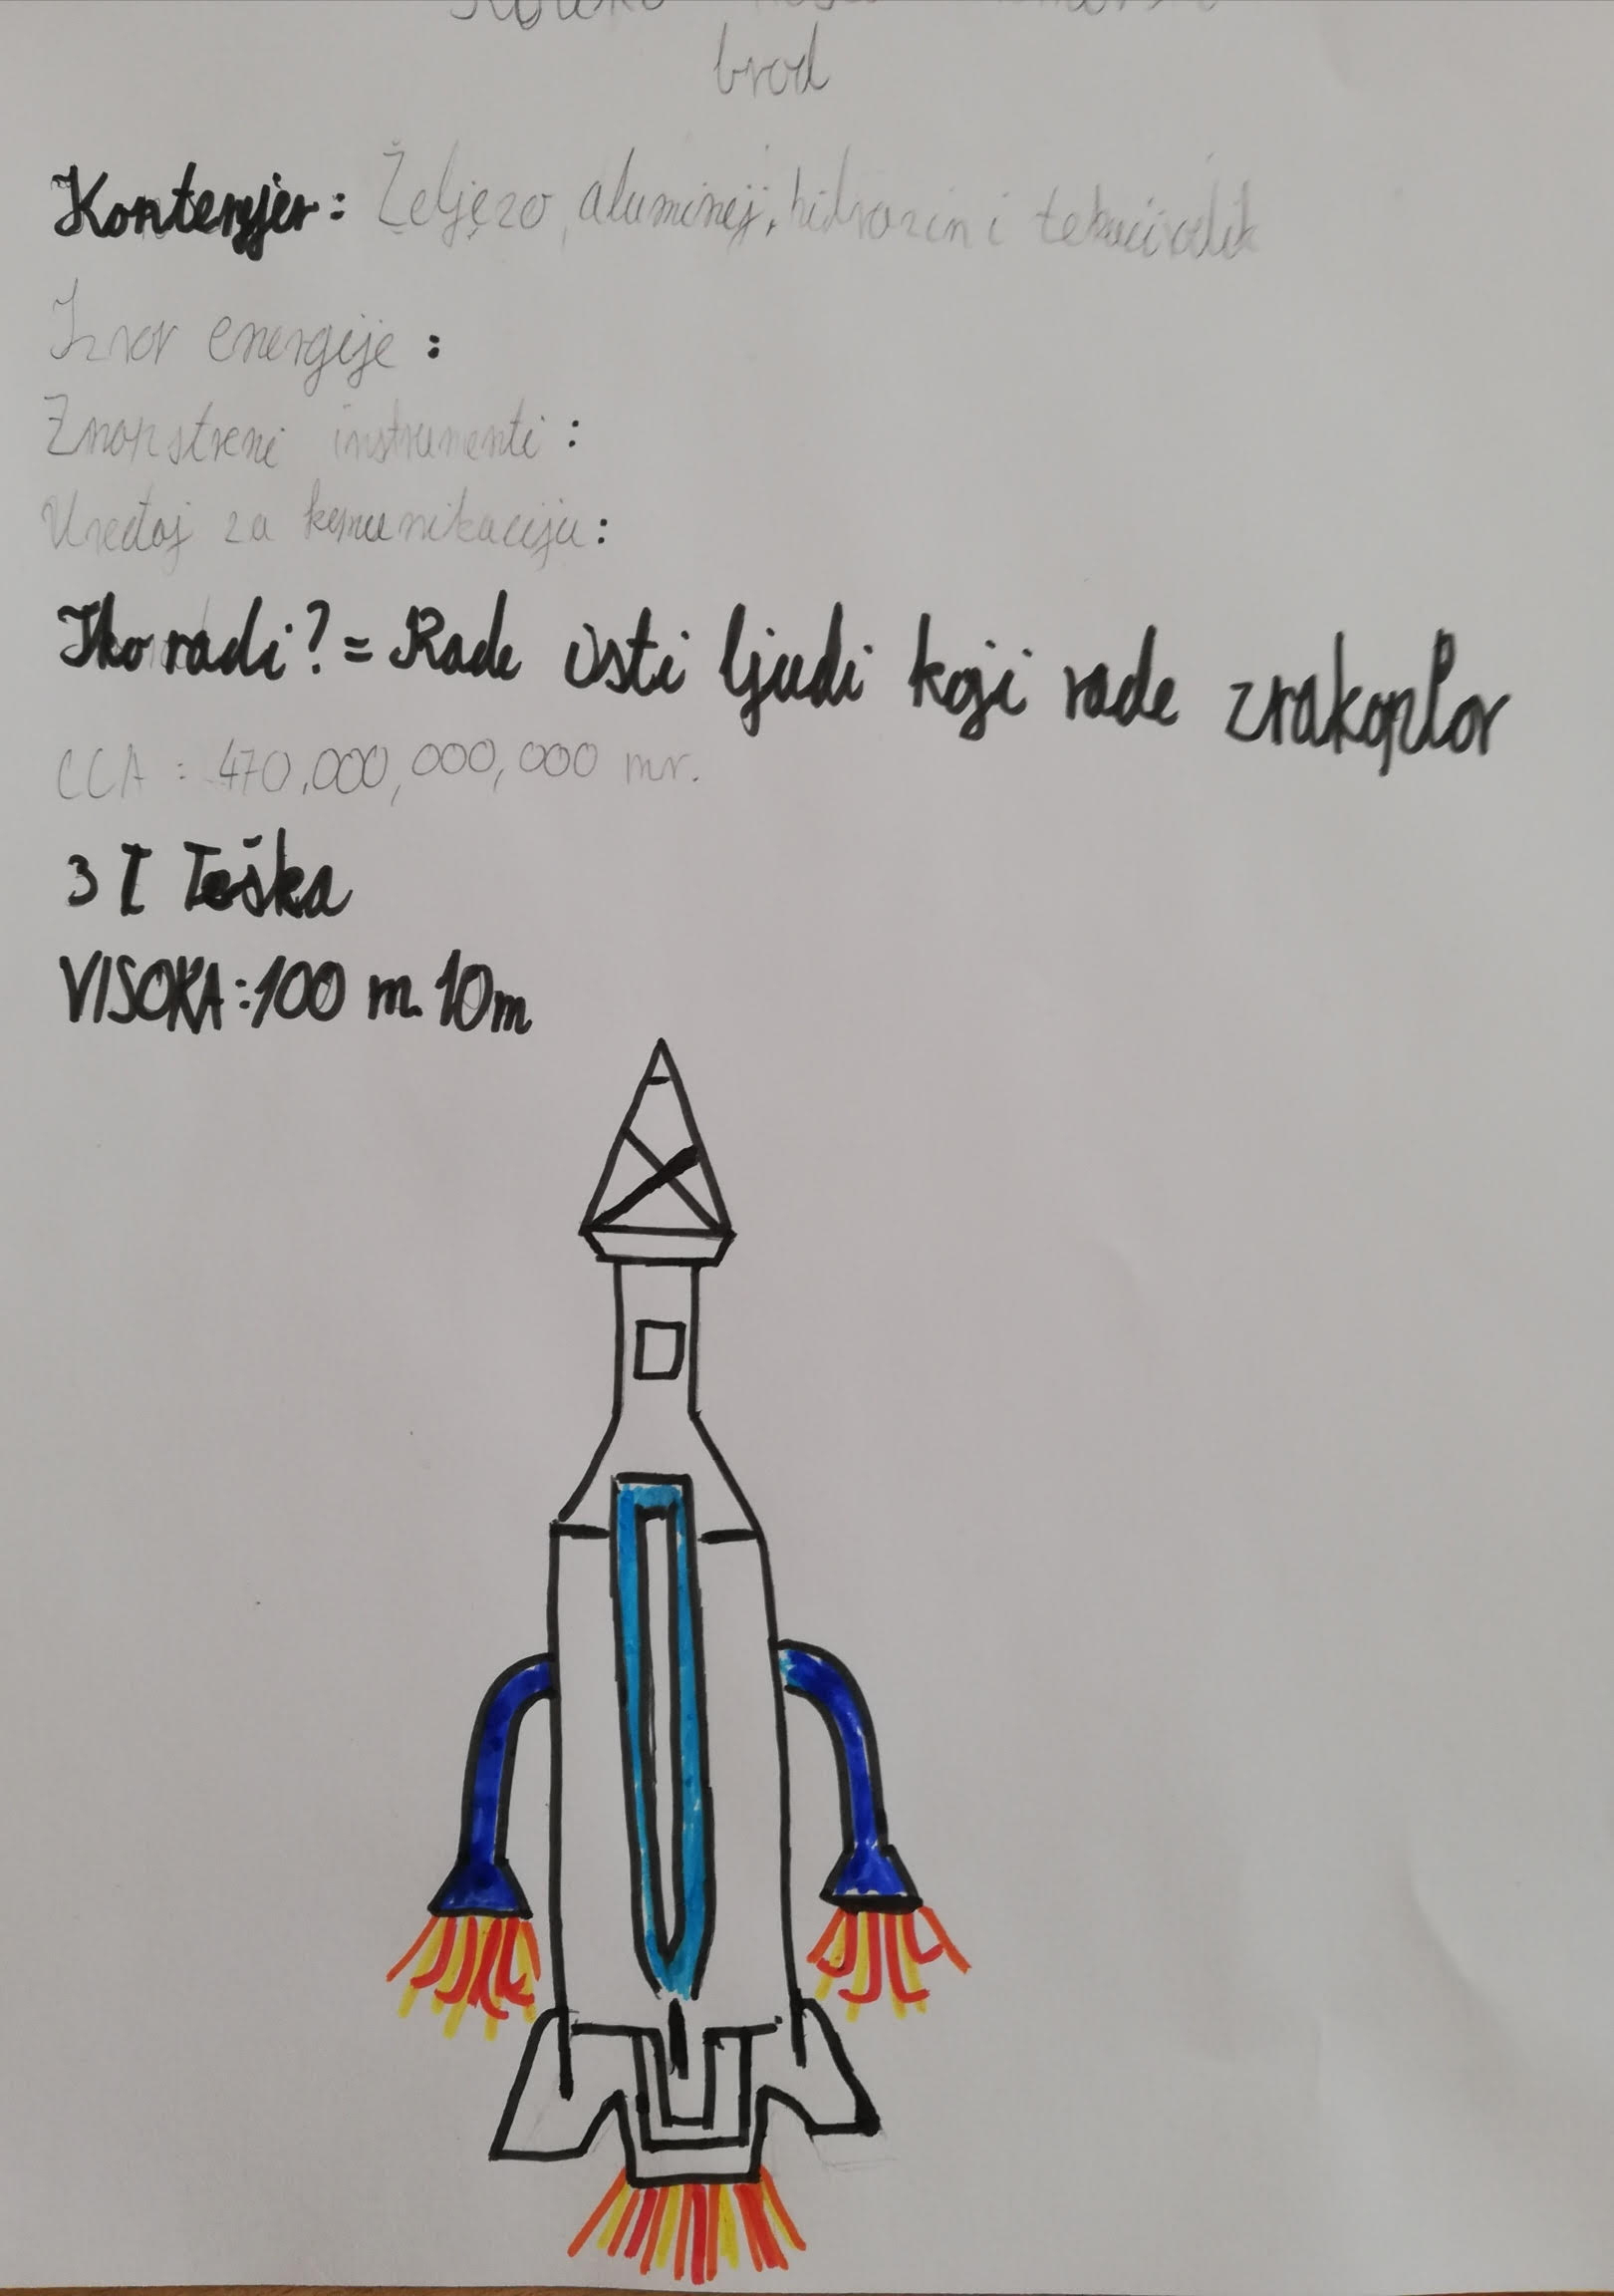 brod
Kontenjer: Željezo, aluminij, hidrazin i tekući vodik
Izvor energije :
Znanstveni instrumenti :
Uređaj za komunikaciju:
Tko radi? = Rade isti ljudi koji rade zrakoplov
CCA : 470.000,000,000 mr.
3 T Teška
VISOKA:100 m. 10m